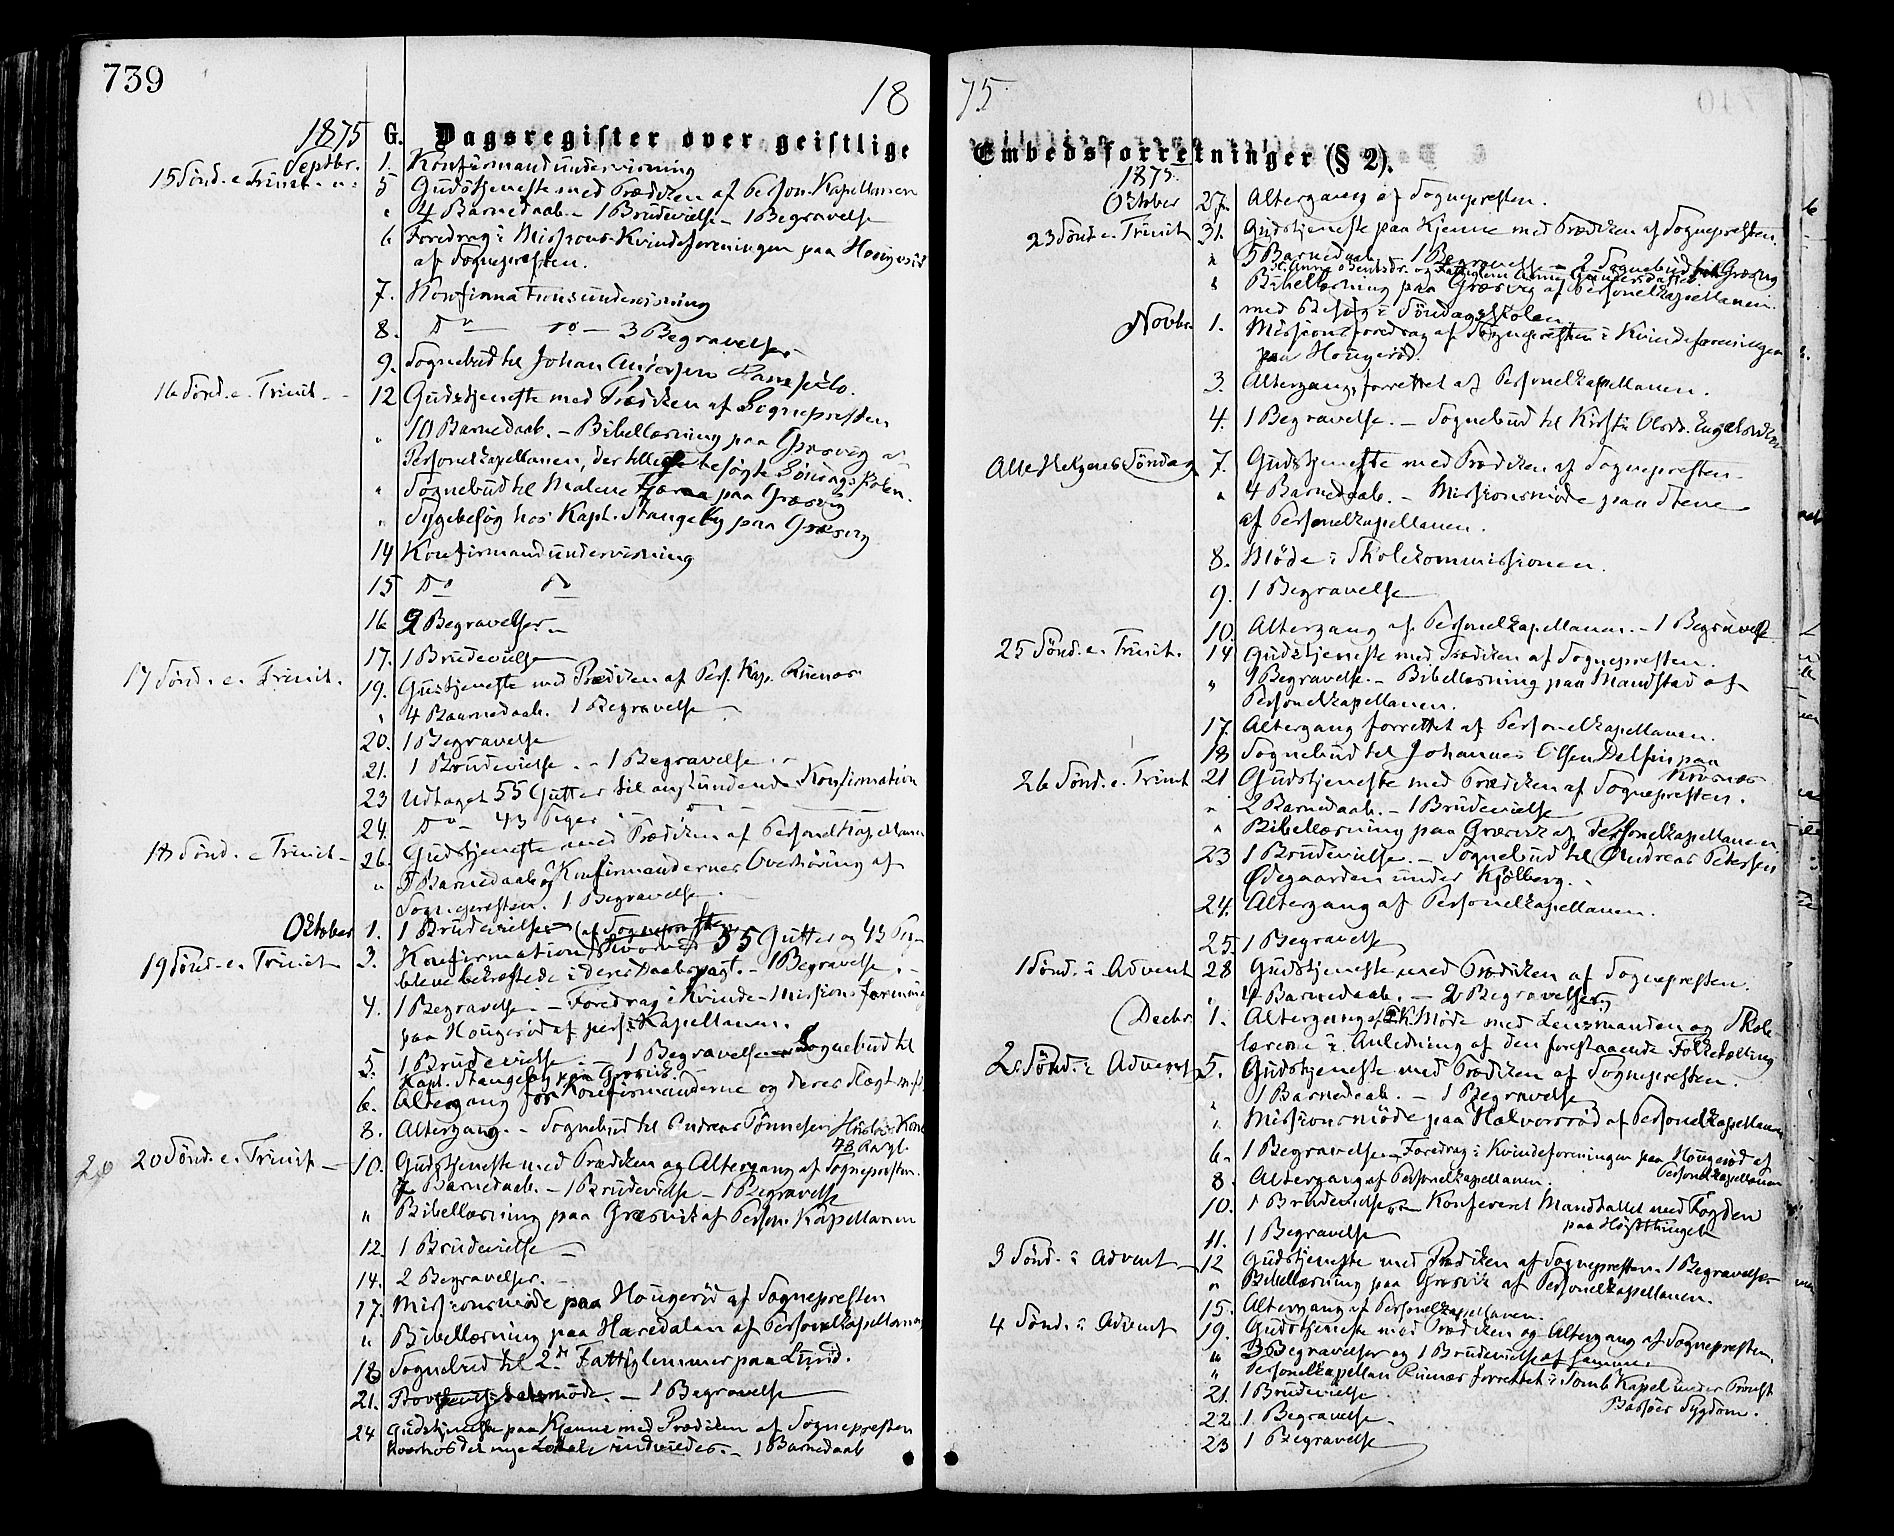 739
18
1875 G. Dagsregister over geistlige
Septbr. 1. Konfirmandundervisning
15 Sønd. e. Trinit. 5 Gudstjeneste med Prædiken af Person. Kapellanen
" 4 Barnedaab. – 1 Brudevielse – 1 Begravelse
6 Foredrag i Missions-Kvindeforeningen paa Hougerød
af Sognepresten.
7. Konfirmationsundervisning
8. Do – Do – 3 Begravelser
9. Sognebud til Johan Andersen
16 Sønd. e. Trinit. – 12 Gudstjeneste med Prædiken af Sognepresten
" 10 Barnedaab. – Bibellæsning paa Græsvig af
Personelkapellanen, der tillige besøgte Søndagsskolen.
" Sognebud til Malene paa Græsvig
" Sygebesøg hos Kapt. Stangeby paa Græsvig
14 Konfirmandundervisning
15 Do Do
16 2 Begravelser. –
17. 1 Brudevielse
17 Sønd. e. Trinit. 19. Gustjeneste med Prædiken af Pers. Kap. Ruenæs
" 4 Baarnedaab. 1 Begravelse –
20. 1 Begravelse
21. 1 Brudevielse. – 1 Begravelse. –
23 Udtaget 55 Gutter til anstundende Konfirmation
24. Do – 43 Piger – Do –
18 Sønd. e. Trinit. – 26. Gudstjeneste med Prædiken af Personelkapellanen
" 5 Barnedaab og Konfirmandernes Overhøring af
Sognepresten. 1 Begravelse.
Oktober 1. 1 Brudevielse (af Sognepresten
19 Sønd. e. Trinit 3. Konfirmation hvorved 55 Gutter og 43 Pi-
bleve bekræftede i deres Daabspagt. – 1 Begravelse. –
4. 1 Begravelse. – Foredrag i Kvinde-Missionsforening
paa Hougerød af pers. Kapellanen.
5. 1 Brudevielse. – 1 Begravelse – Sognebud til
Kapt. Stangeby paa Græsvik.
6. Altergang for Konfirmanderne og deres Slægt
8. Altergang. – Sognebud til Andreas Tønnesen
78 Aar gl.
20 20 Sønd. e. Trinit – 10. Gudstjeneste med Prædiken og Altergang af Sognepresten.
7 Barnedaab. – 1 Brudevielse – 1 Begravelse
" Bibellæsning paa Græsvik af Person. Kapellanen
12. 1 Brudevielse –
14. 2 Begravelser. –
17. Missionsmøde paa Hougerød af Sognepresten
" Bibellæsning paa Haredalen af Personelkapellanen
18 Sognebud til 2de Fattiglemmer paa Lund.
21. – 1 Begravelse
24 Gudstjeneste paa Kjenne med Prædiken af Sognepresten
hvorhos det nye Lokale indviedes. – 1 Barnedaab
75
Embedsforretninger (§ 2).
1875.
Oktober 27. Altergang af Sognepresten.
23 Sønd. e. Trinit 31. Gudstjeneste paa Kjenne med Prædiken af Sognepresten.
" 5 Barnedaab. 1 Begravelse – 2 Sognebud Græsvig
" Bibellæsning paa Græsvig af Personelkapellanen
med Besøg i Søndagsskolen
Novbr. 1. Missionsforedrag af Sognepresten i Kvindeforeningen
paa Hougerød.
3. Altergang, forrettet af Personelkapellanen.
4. 1 Begravelse. – Sognebud til Kirsti Olsdr.
Alle Helgens Søndag 7. Gudstjeneste med Prædiken af Sognepresten.
" 4 Barnedaab. – Missionsmøde paa Stene
af Personelkapellanen.
8. Møde i Skolekommissionen.
9. 1 Begravelse
10. Altergang af Personelkapellanen. – 1 Begravelse
25 Sønd. e. Trinit. 14 Gudstjeneste med Prædiken af Sognepresten.
" 1 Begravelse. – Bibellæsning paa Mandstad af
Personelkapellanen.
17. Altergang forrettet af Personelkapellanen.
18 Sognebud til Johannes Olsen Delfin paa
26 Sønd. e. Trinit 21 Gudstjeneste med Prædiken af Sognepresten.
" 2 Barnedaab. – 1 Brudevielse
" Bibellæsning paa Græsvik af Personelkapellanen
23 1 Brudevielse. – Sognebud til Andreas Petersen
Ødegaarden under Kjølberg. –
24. Altergang af Personelkapellanen.
25. 1 Begravelse
1 Sønd. i Advent 28 Gudstjeneste med Prædiken af Sognepresten.
" 4 Barnedaab. – 2 Begravelser
Decbr. 1. Altergang af P. K. Møde med Lensmanden og Skole-
lærerne i Anledning af den forestaaende Folketælling
2. Sønd. i Advent 5. Gudstjeneste med Prædiken af Sognepresten.
" 1 Barnedaab. – 1 Begravelse
" Missionsmøde paa Halvorsrød af Personelkapellanen
6. 1 Begravelse. Foredrag i Kvindeforeningen paa Hougerød af
Personelkapellanen
8. Altergang af Personelkapellanen.
10. 1 Brudevielse – Konfereret Mandtallet med Fogden
paa Høstthinget
11. 1 Begravelse
3 Sønd. i Advent – 12 Gudstjeneste med Prædiken af Sognepresten. 1 Begravelse
" Bibellæsning paa Græsvik af Personelkapellanen.
15. Altergang af Personelkapellanen.
4 Sønd. i Advent 19. Gudstjeneste med Prædiken og Altergang af Sognepresten.
" 3 Begravelser og 1 Brudevielse af samme.
" Personelkapellan Ruenæs forrettet i Tomb Kapel under Provst
21. 1 Brudevielse Bassøes Sygdom.
22. 1 Begravelse.
23 1 Begravelse